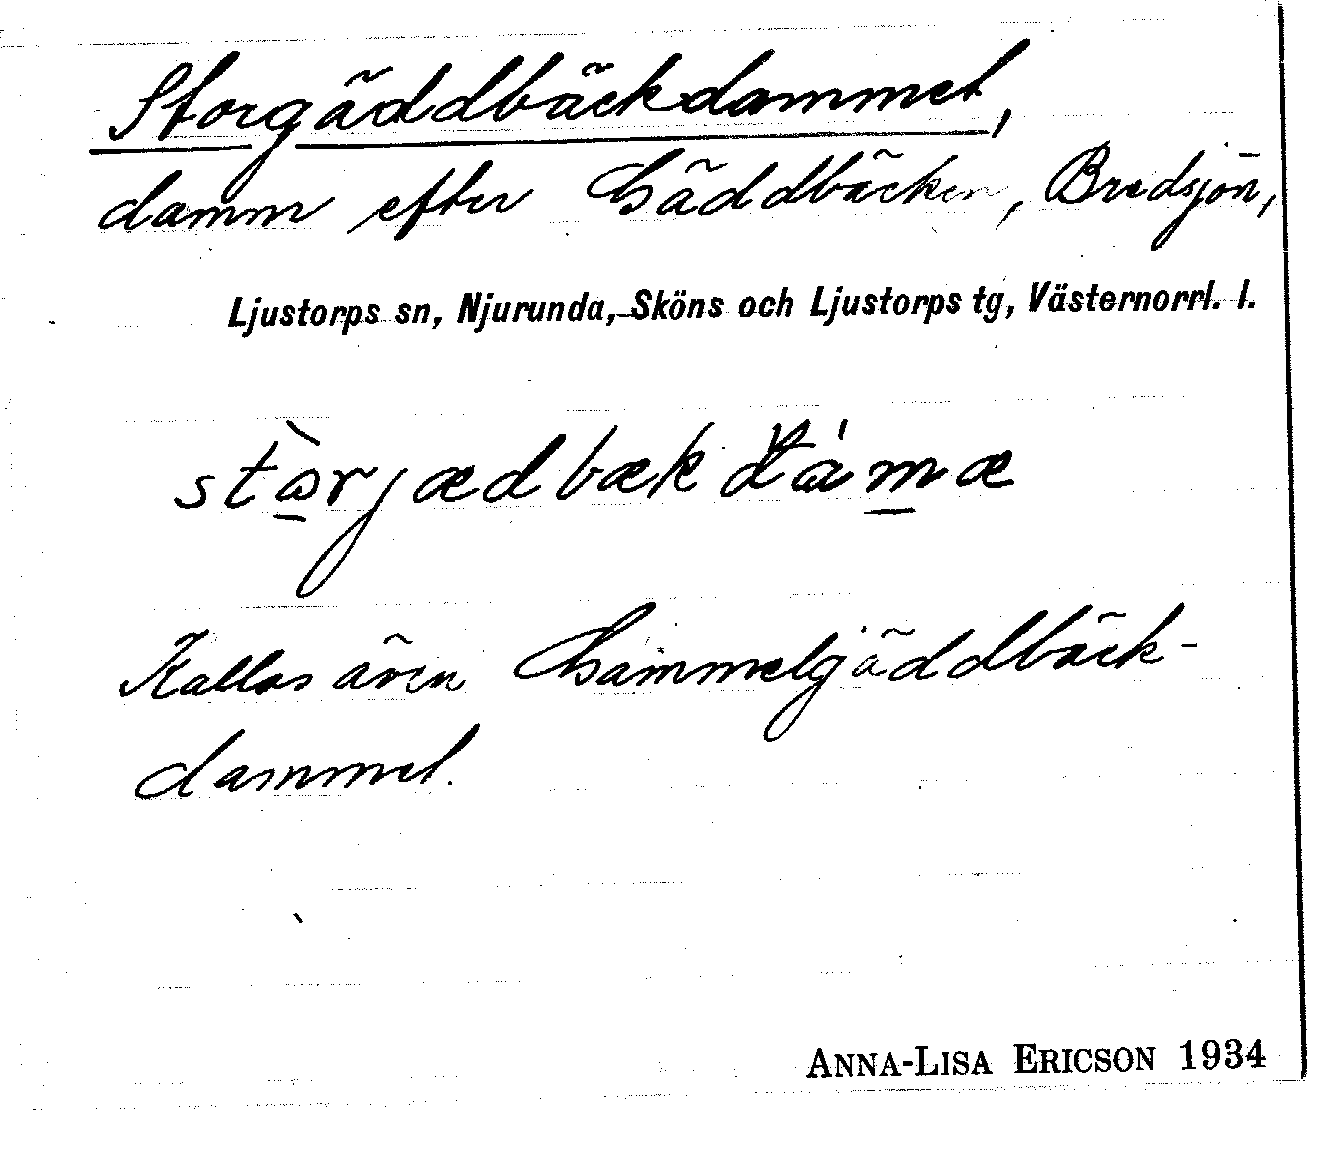 Storgäddbäckdammet,
damm efter Gäddbäcken, Bredsjön,
Ljustorps sn, Njurunda, Sköns och Ljustorps tg, Västernorrl. l.
stɷ̀rjædbækdámæ
Kallas även Gammelgäddbäck-
dammet.
ANNA-LISA ERICSON 1934